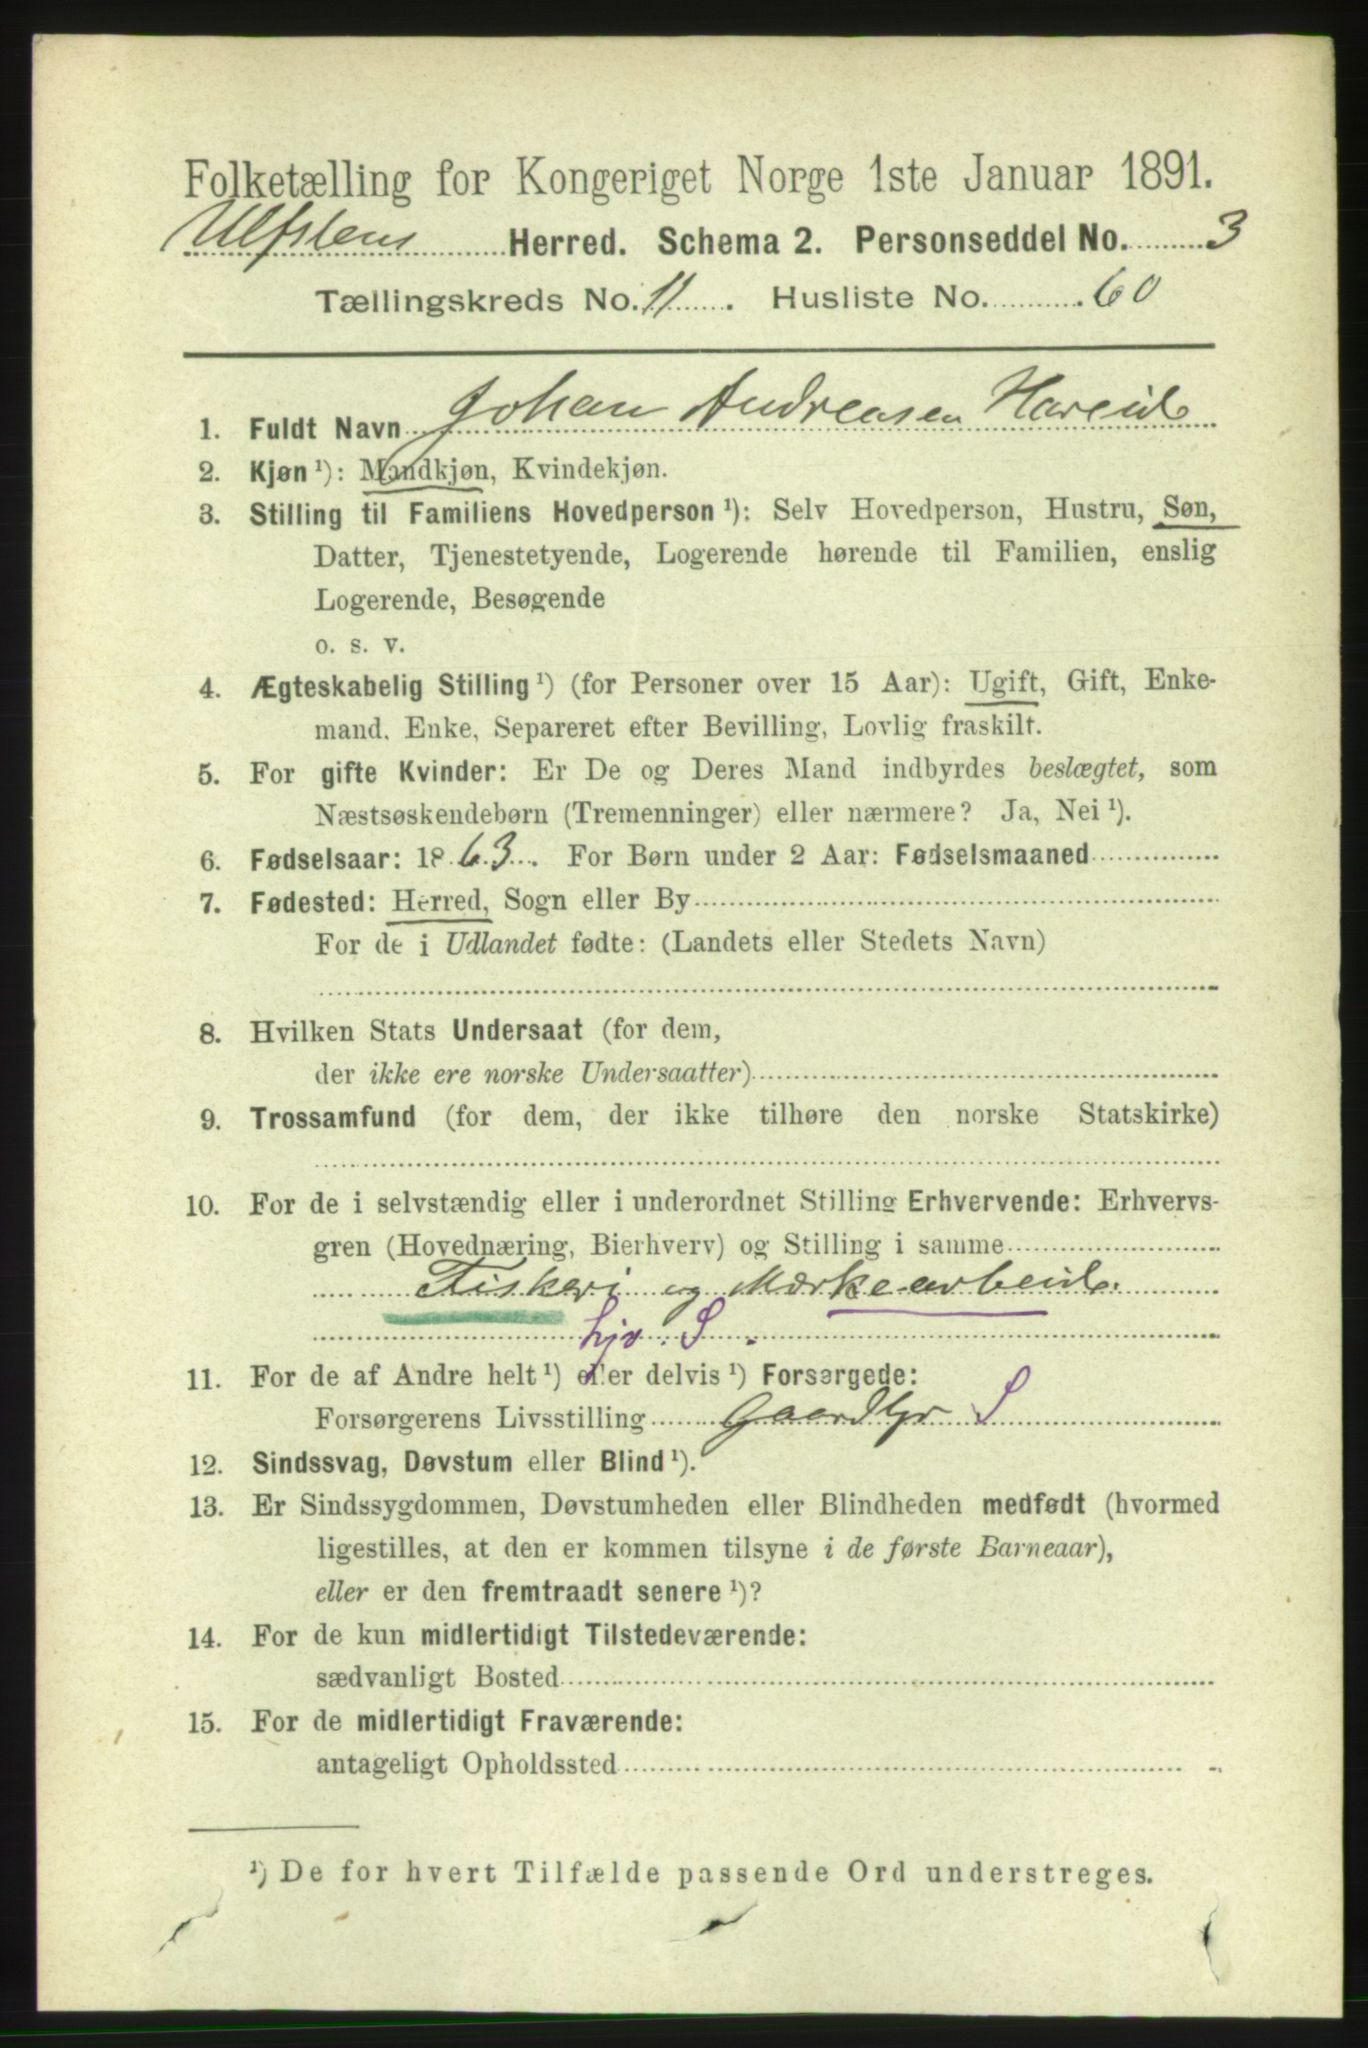 Folketælling for Kongeriget Norge 1ste Januar 1891.
Ulfstens Herred. Schema 2. Personseddel No. 3
Tællingskreds No. 11. Husliste No. 60
1. Fuldt Navn Johan Andreasen Hareid
2. Kjøn ¹): Mandkjøn, Kvindekjøn.
3. Stilling til Familiens Hovedperson ¹): Selv Hovedperson, Hustru, Søn,
Datter, Tjenestetyende, Logerende hørende til Familien, enslig
Logerende, Besøgende
o. s. v.
4. Ægteskabelig Stilling ¹) (for Personer over 15 Aar): Ugift, Gift, Enke-
mand, Enke, Separeret efter Bevilling, Lovlig fraskilt.
5. For gifte Kvinder: Er De og Deres Mand indbyrdes beslægtet, som
Næstsøskendebørn (Tremenninger) eller nærmere? Ja, Nei ¹).
6. Fødselsaar: 1863. For Børn under 2 Aar: Fødselsmaaned
7. Fødested: Herred, Sogn eller By
For de i Udlandet fødte: (Landets eller Stedets Navn)
8. Hvilken Stats Undersaat (for dem,
der ikke ere norske Undersaatter)
9. Trossamfund (for dem, der ikke tilhøre den norske Statskirke)
10. For de i selvstændig eller i underordnet Stilling Erhvervende: Erhvervs-
gren (Hovednæring, Bierhverv) og Stilling i samme
Fiskeri og Markearbeide.
hjv. S.
11. For de af Andre helt ¹) eller delvis ¹) Forsørgede:
Forsørgerens Livsstilling Gaardbr S
12. Sindssvag, Døvstum eller Blind ¹).
13. Er Sindssygdommen, Døvstumheden eller Blindheden medfødt (hvormed
ligestilles, at den er kommen tilsyne i de første Barneaar),
eller er den fremtraadt senere ¹)?
14. For de kun midlertidigt Tilstedeværende:
sædvanligt Bosted
15. For de midlertidigt Fraværende:
antageligt Opholdssted
¹) De for hvert Tilfælde passende Ord understreges.